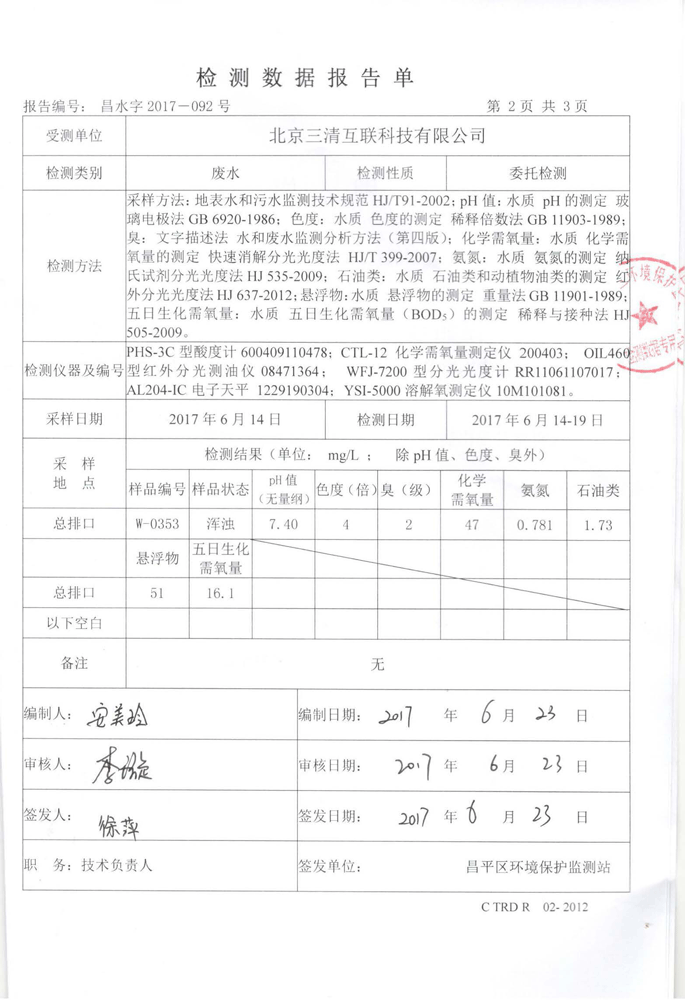 检测数据报告单
报告编号： 昌水字 2017－092 号 第 2 页 共 3 页
受测单位 北京三清互联科技有限公司
检测类别 废水 检测性质 委托检测
检测方法
采样方法：地表水和污水监测技术规范 HJ/T91-2002；pH 值：水质 pH 的测定 玻
璃电极法 GB 6920-1986；色度：水质 色度的测定 稀释倍数法 GB 11903-1989；
臭：文字描述法 水和废水监测分析方法（第四版）；化学需氧量：水质 化学需
氧量的测定 快速消解分光光度法 HJ/T 399-2007；氨氮：水质 氨氮的测定 纳
氏试剂分光光度法 HJ 535-2009；石油类：水质 石油类和动植物油类的测定 红
外分光光度法 HJ 637-2012；悬浮物：水质 悬浮物的测定 重量法 GB 11901-1989；
五日生化需氧量：水质 五日生化需氧量（BOD₅）的测定 稀释与接种法 HJ
505-2009。
检测仪器及编号
PHS-3C 型酸度计 600409110478；CTL-12 化学需氧量测定仪 200403； OIL460
型红外分光测油仪 08471364； WFJ-7200 型分光光度计 RR11061107017；
AL204-IC 电子天平 1229190304；YSI-5000 溶解氧测定仪 10M101081。
采样日期 2017 年 6 月 14 日 检测日期 2017 年 6 月 14-19 日
采 样
地 点
检测结果（单位： mg/L ； 除 pH 值、色度、臭外）
样品编号 样品状态 pH 值（无量纲） 色度（倍） 臭（级） 化学需氧量 氨氮 石油类
总排口 W-0353 浑浊 7.40 4 2 47 0.781 1.73
悬浮物 五日生化需氧量
总排口 51 16.1
以下空白
备注 无
编制人： 安美玲 编制日期： 2017 年 6 月 23 日
审核人： 李璇 审核日期： 2017 年 6 月 23 日
签发人： 徐萍 签发日期： 2017 年 6 月 23 日
职 务：技术负责人 签发单位： 昌平区环境保护监测站
C TRD R 02- 2012
环境保护